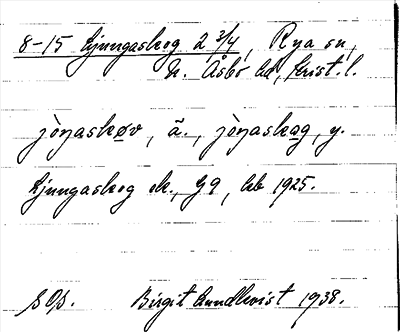 8-15 Ljungaskog 2 3/4, Rya sn,
N. Åsbo hd, Krist. l.
jòŋaskøv, ä., jòŋaskøg, y.
Ljungaskog ek., G9, kb 1925.
s Op. Birgit Lundkvist 1938.